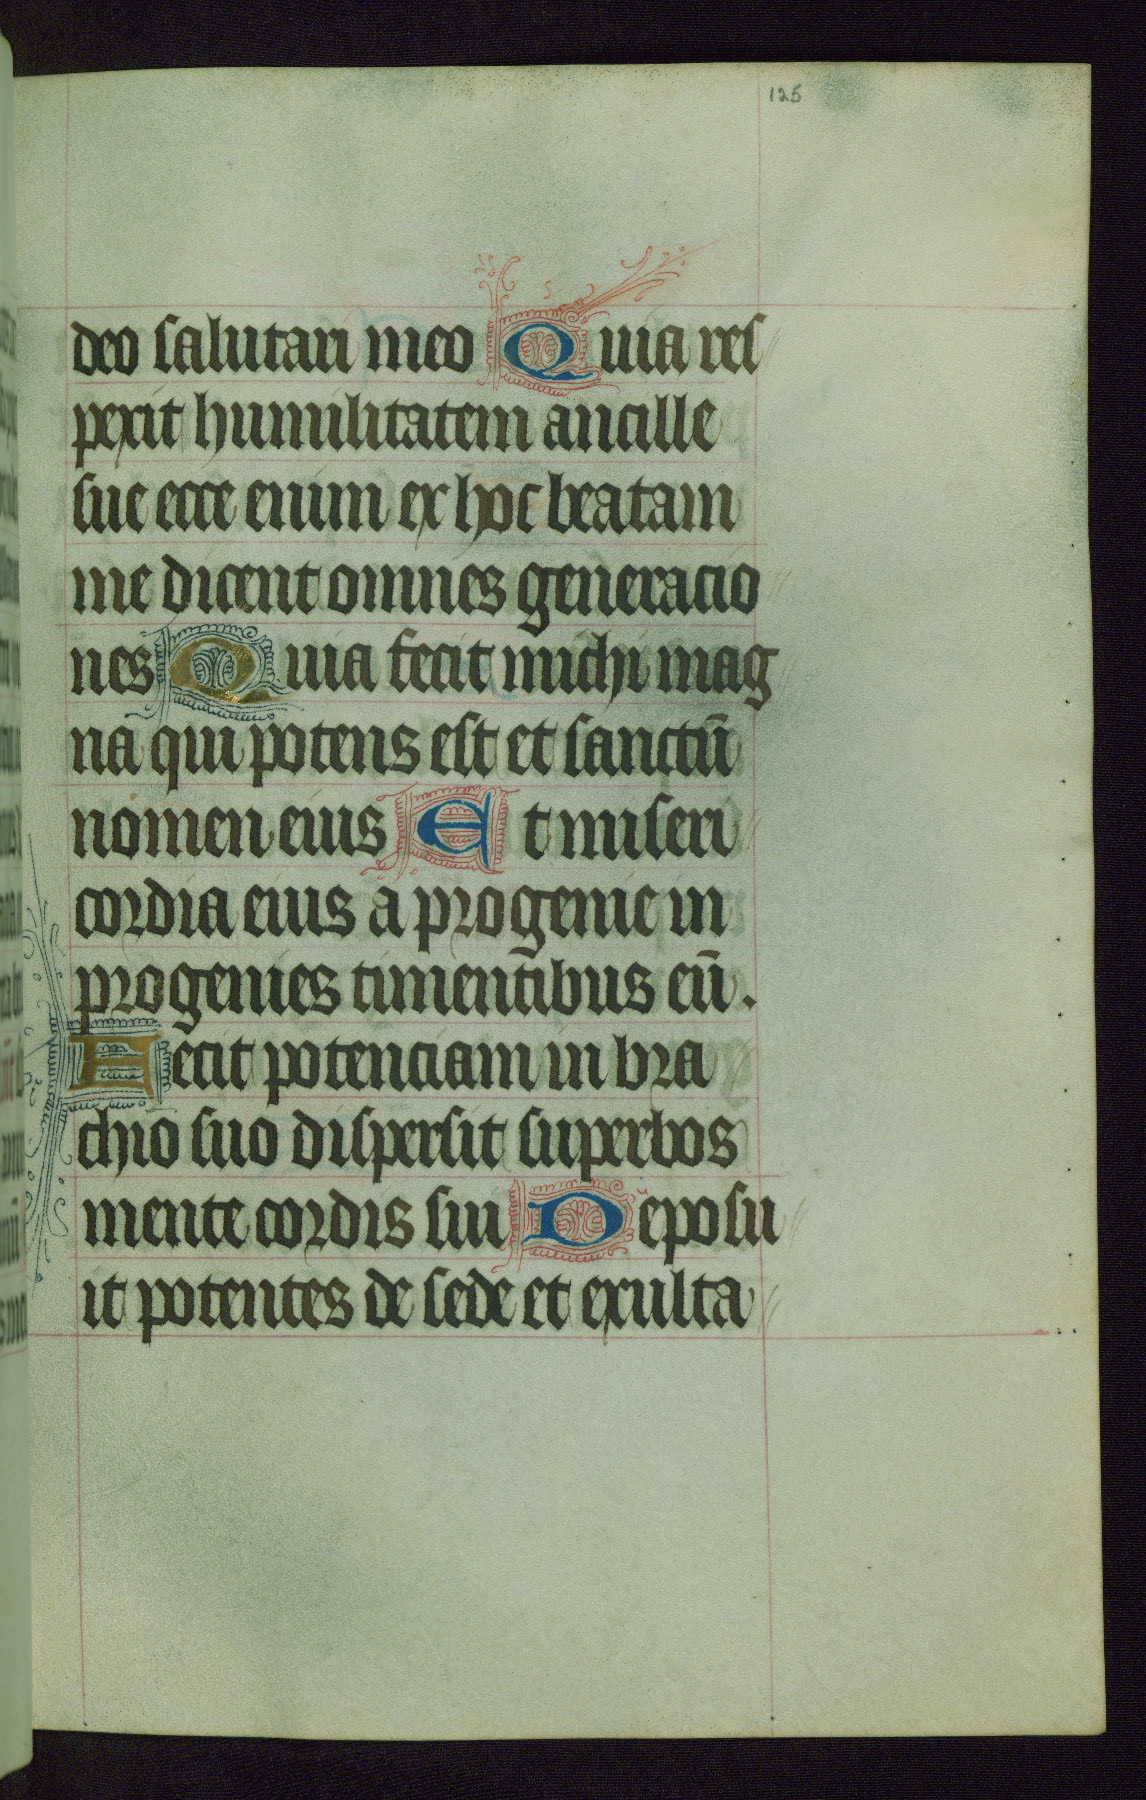 125
deo salutari meo Quia res
pexit humilitatem ancille
sue ecce enim ex hoc beatam
me dicent omnes generacio
nes Quia fecit michi mag
na qui potens est et sanctū
nomen eius Et miseri
cordia eius a progenie in
progenies timentibus eū.
Fecit potenciam in bra
chio suo dispersit superbos
mente cordis sui Deposu
it potentes de sede et exulta